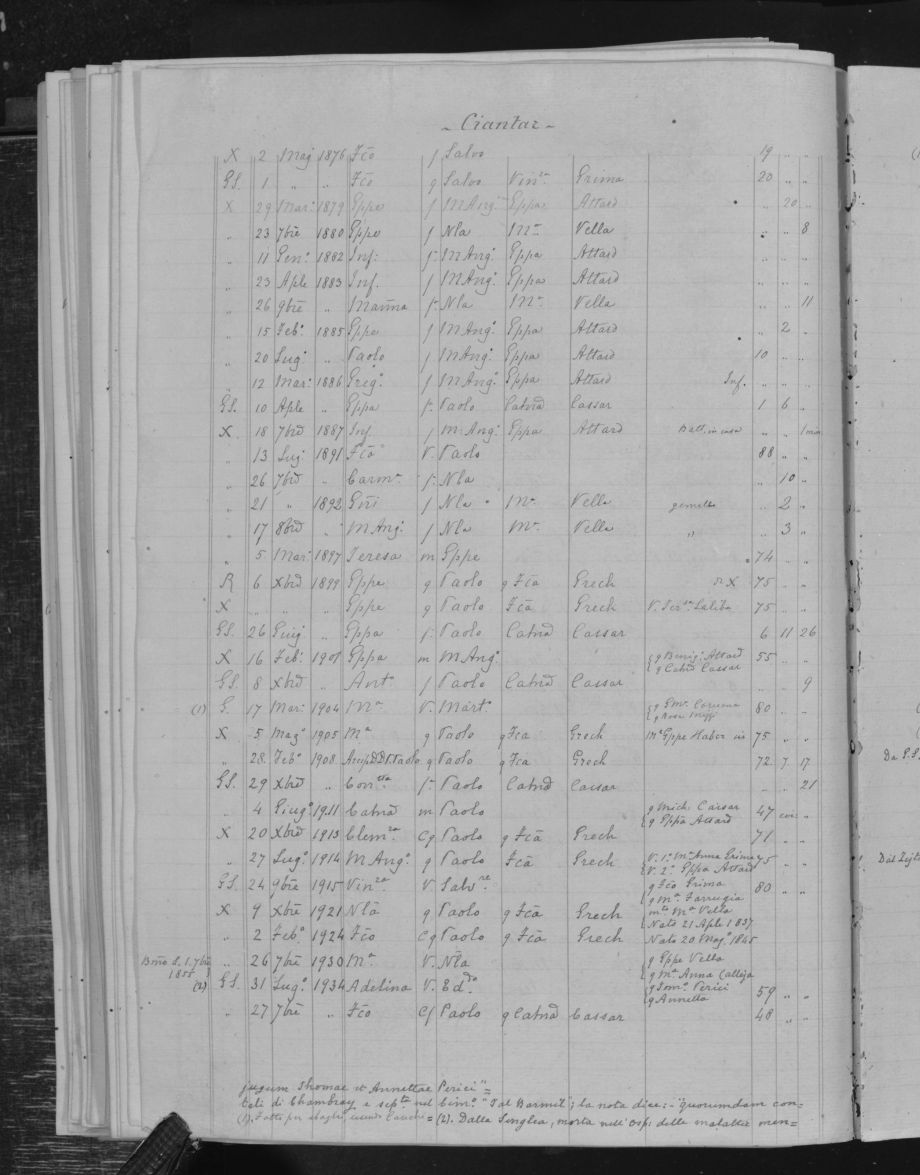 ~ Ciantar ~
X 2 Mag 1876 Fco f Salvo 19 " "
GS. 1 " " Fco q Salvo Vinza Grima 20 " "
X 29 Mar: 1879 Gppe f MAngo Gppa Attard " 20 "
" 23 7bre 1880 Gppe f Nla Ma Vella " " 8
" 11 Geno 1882 Inf: f MAngo Gppa Attard " "
" 23 Aple 1883 Inf. f MAngo Gppa Attard " "
" 26 9bre " Marina f Nla Ma Vella " " 11
" 15 Febo 1885 Gppe f MAngo Gppa Attard " 2 "
" 20 Lugo " Paolo f MAngo Gppa Attard 10 " "
" 12 Mar: 1886 Grego f MAngo Gppa Attard Inf. " " "
GS. 10 Aple " Gppa f Paolo Catna Cassar 1 6 "
X 18 7bre 1887 Inf f MAngo Gppa Attard Batt. in casa " " 1 min
" 13 Lug. 1891 Fca V. Paolo 88 " "
" 26 7bre " Carma f Nla " 10 "
" 21 " 1892 Gni f Nla Ma Vella gemelle " 2 "
" 17 8bre " MAngo f Nla Ma Vella " " 3 "
" 5 Mar: 1897 Teresa m Gppe 74 " "
R 6 Xbre 1899 Gppe q Paolo q Fca Grech X 75 " "
X " " " Gppe q Paolo Fca Grech V. Tersa Saliba 75 " "
GS. 26 Giug " Gppa f Paolo Catna Cassar 6 11 26
X 16 Feb. 1901 Gppa m MAngo { q Benigo Attard q Catna Cassar 55 " "
GS. 8 Xbre " Anta f Paolo Catna Cassar " " 9
(1) G 17 Mar: 1904 Ma V. Marta 80 " "
X 5 Mago 1905 Ma q Paolo q Fca Grech Ma Gppe Haber 75 " "
" 28 Febo 1908 Arcip D.D.V. Paolo q Paolo q Fca Grech 72 7 17
GS. 29 Xbre " Contta f Paolo Catna Cassar " " 21
" 4 Giugo 1911 Catna m Paolo { q Mich. Cassar q Gppa Attard 47 "
X 20 Xbre 1913 Clemza Cq Paolo q Fca Grech 71 " "
" 27 Lugo 1914 MAngo q Paolo Fca Grech { V. 1o Ma Anna Grima V. 2o Gppa Attard 75 " "
GS. 24 9bre 1915 Vinza V. Salvre { q Fco Grima q Ma Farrugia 80 " "
X 9 Xbre 1921 Nla q Paolo q Fca Grech { mto Ma Vella Nato 21 Aple 1837
" 2 Febo 1924 Fco Cq Paolo q Fca Grech Nato 20 Mago 1845
1855 " 26 7bre 1930 Ma V. Nla { q Gppe Vella q Ma Anna Calleja
(2) GS. 31 Lugo 1934 Adelina V. Eddo { q Tomo Perici q Annetta 59 " "
" 27 7bre " Fco Cf Paolo q Catna Cassar 48 " "
jugum Thomae et Annettae Perici" =
teli di Chambray e septa nel Cimo "Tal Barmil"; la nota dice: - "quorumdam con=
(1). Fatti per sbaglio = (2). Dalla Senglea, morta nell' Osp: delle malattie men=